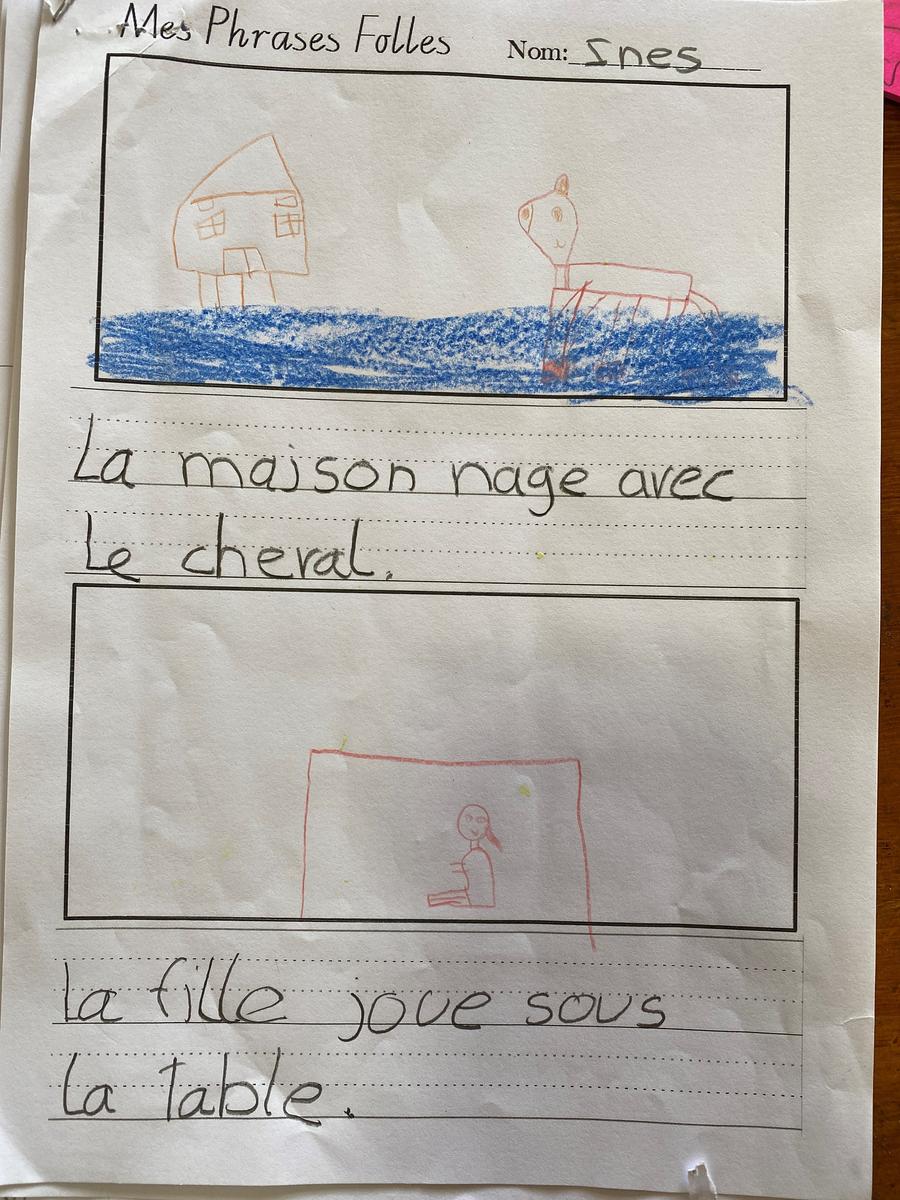 Mes Phrases Folles Nom: Ines
La maison nage avec
le cheval.
la fille joue sous
la table.